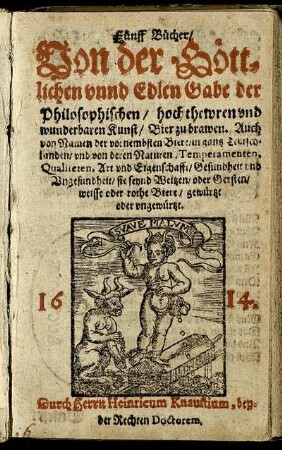 Fünff Bücher/
Von der Gött-
lichen vnnd Edlen Gabe der
Philosophischen / hoch thewren vnd
wunderbaren Kunst / Bier zu brawen. Auch
von Namen der vornembsten Biere / in gantz Teutsch-
landen / vnd von deren Naturen / Temperamenten,
Qualiteten, Art vnd Eigenschafft / Gesundheit vnd
Vngesundheit / sie seynd Weitzen / oder Gersten /
weisse oder rothe Biere / gewürtzt
oder vngewürtzt.
16 14.
Durch Herrn Heinricum Knaustium, bey-
der Rechten Doctorem.